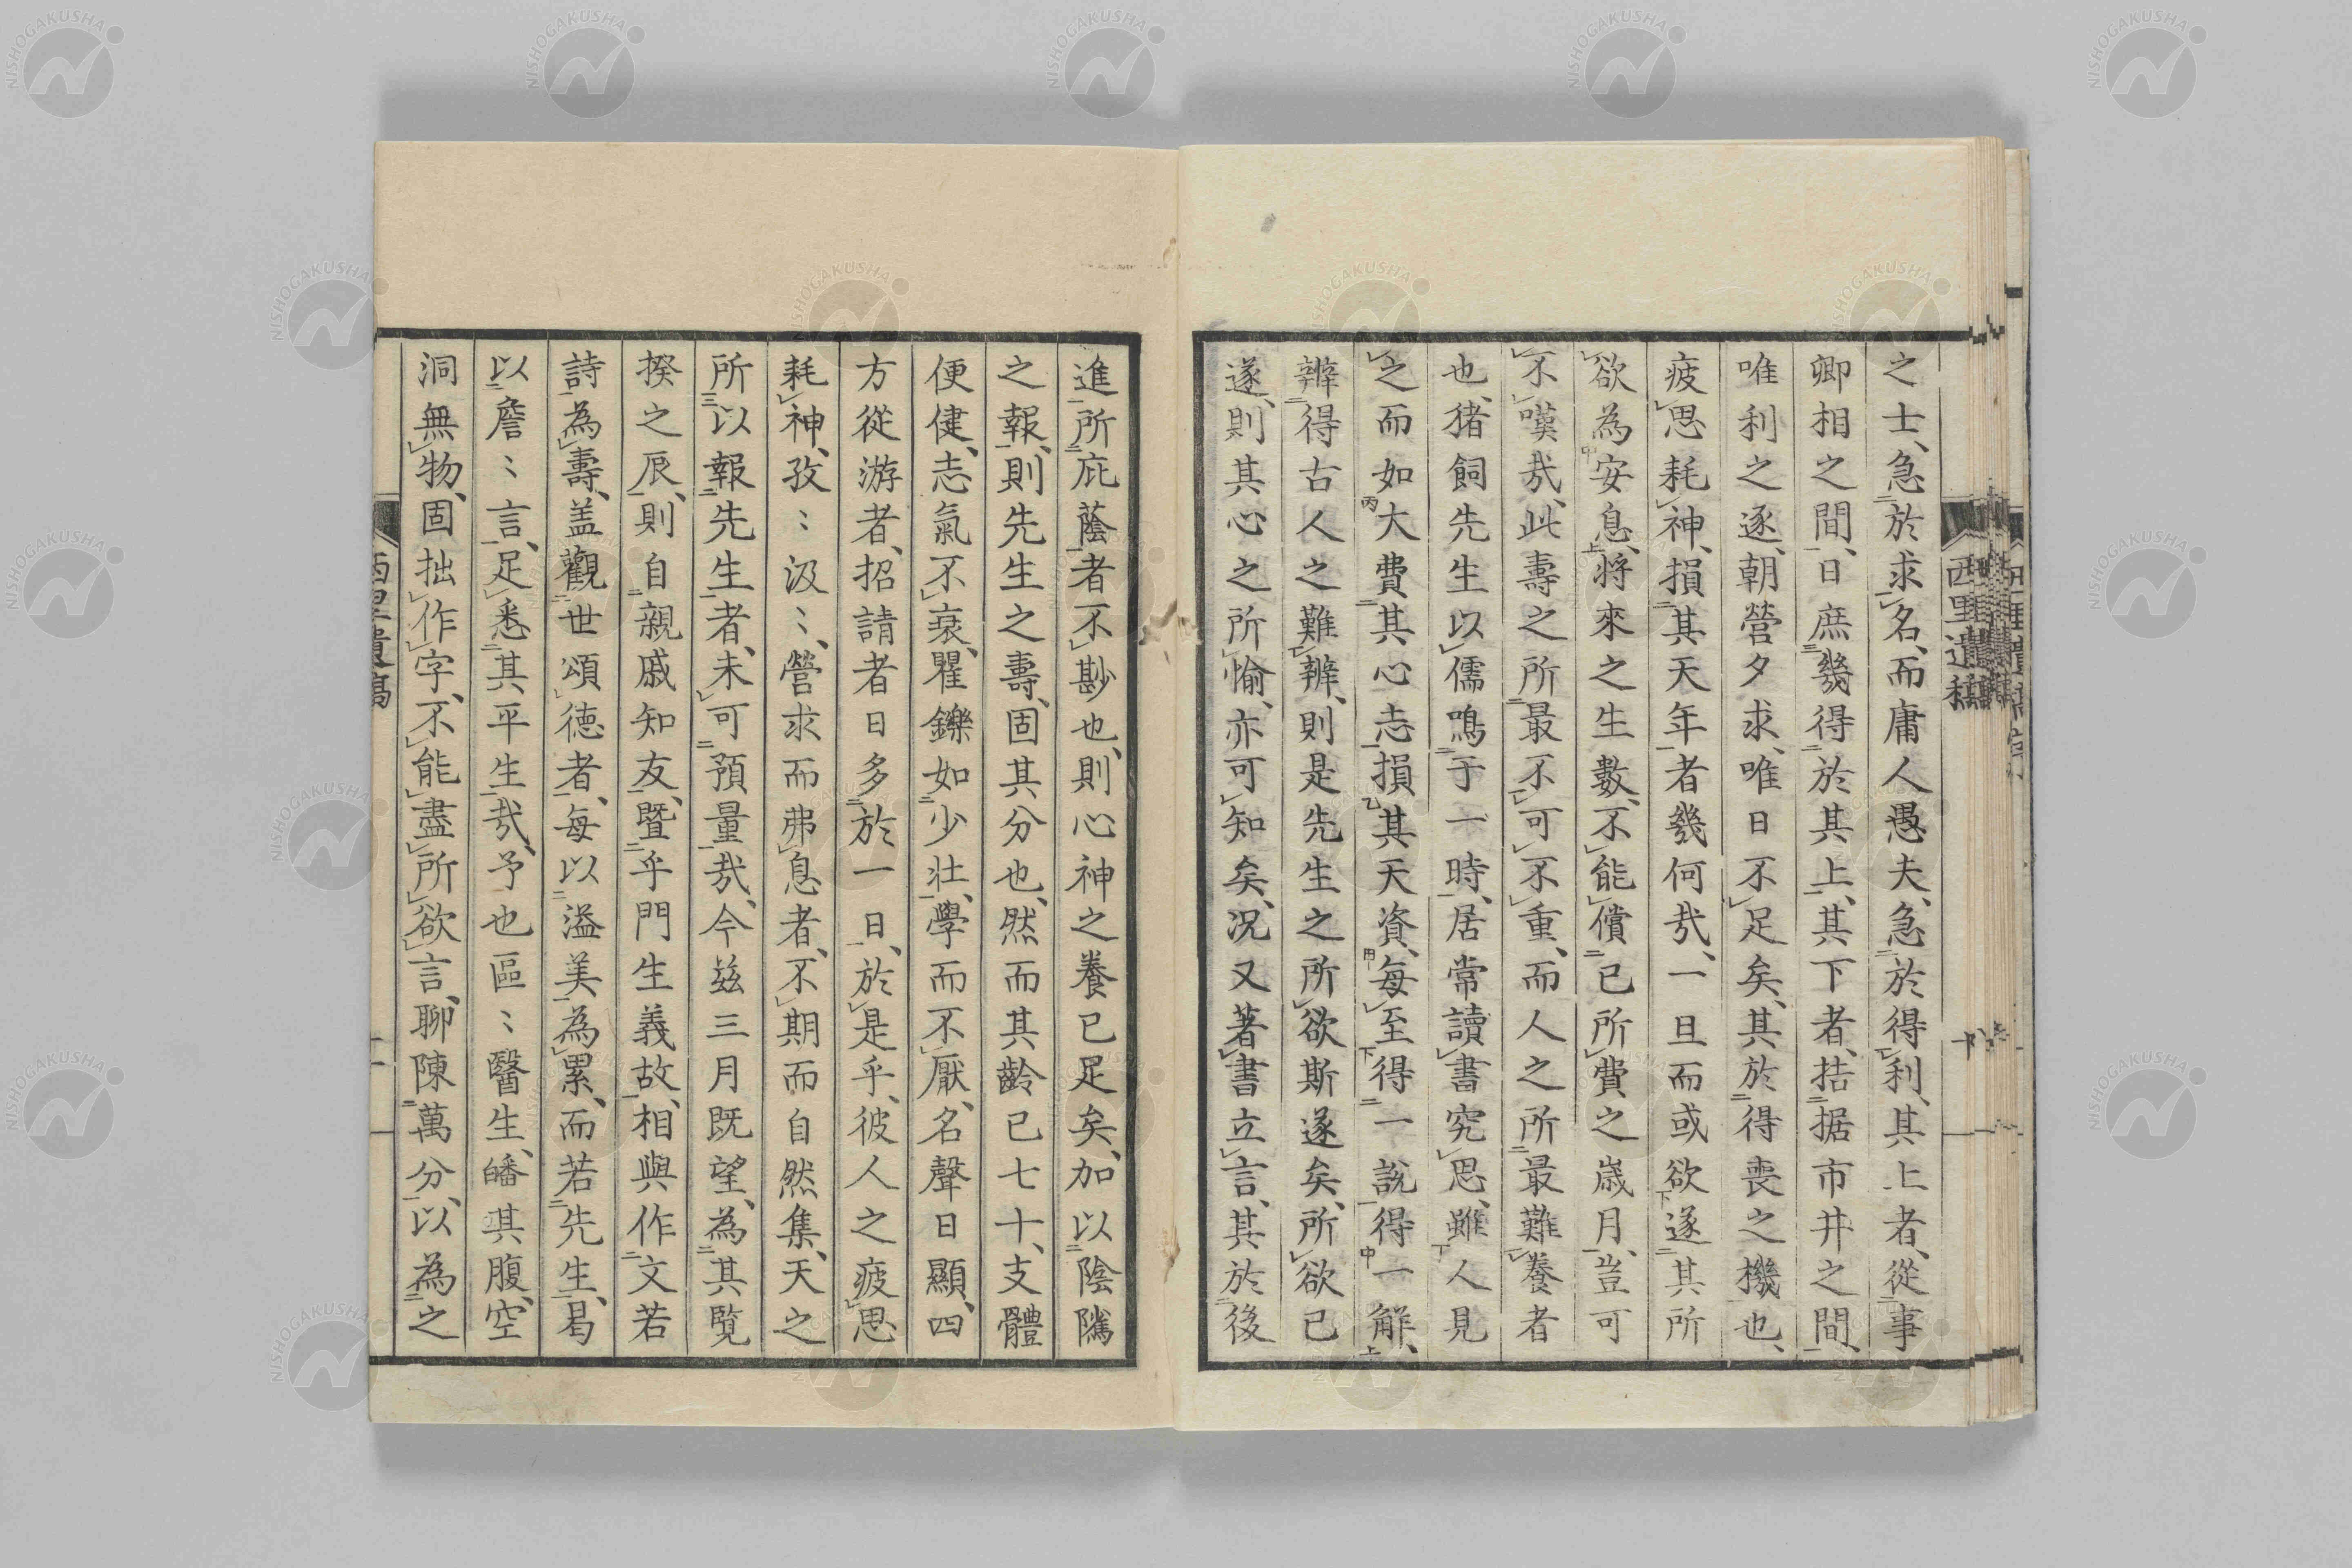 之士、急於求名、而庸人愚夫、急於得利、其上者、從事
卿相之間、日庶幾得於其上、其下者、拮据市井之間、
唯利之逐、朝營夕求、唯日不足矣、其於得喪之機也、
疲思耗神、損其天年者幾何哉、一旦而或欲遂其所
欲為安息、將來之生數、不能償已所費之歳月、豈可
不嘆哉、此壽之所最不可不重、而人之所最難養者
也、猪飼先生以儒鳴于一時、居常讀書究思、雖人見
之而如大費其心志損其天資、每至得一說得一解、
辨得古人之難辨、則是先生之所欲斯遂矣、所欲已
遂、則其心之所愉、亦可知矣、況又著書立言、其於後
西里遺稿
進所庇蔭者不尠也、則心神之養已足矣、加以陰隲
之報、則先生之壽、固其分也、然而其齡已七十、支體
便健、志氣不衰、矍鑠如少壮、學而不厭、名聲日顯、四
方從游者、招請者日多於一日、於是乎、彼人之疲思
耗神、孜〻汲〻、營求而弗息者、不期而自然集、天之
所以報先生者、未可預量哉、今茲三月既望、為其覧
揆之辰、則自親戚知友、曁乎門生義故、相與作文若
詩為壽、盖觀世頌德者、每以溢美為累、而若先生、曷
以詹〻言、足悉其平生哉、予也區〻醫生、皤其腹、空
洞無物、固拙作字、不能盡所欲言、聊陳萬分、以為之
西里遺稿